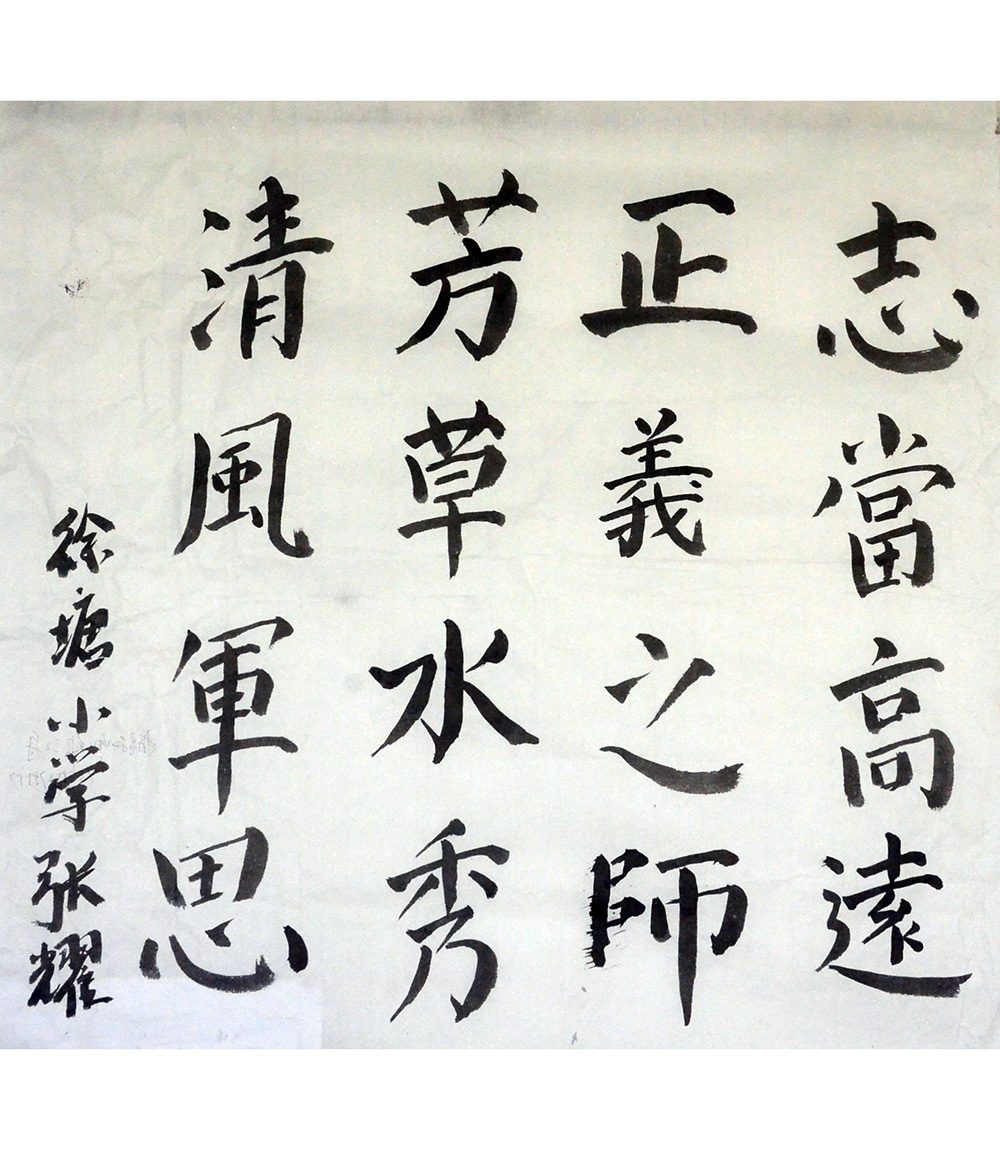 志當高遠
正義之師
芳草水秀
清風軍思
徐塘小学張耀